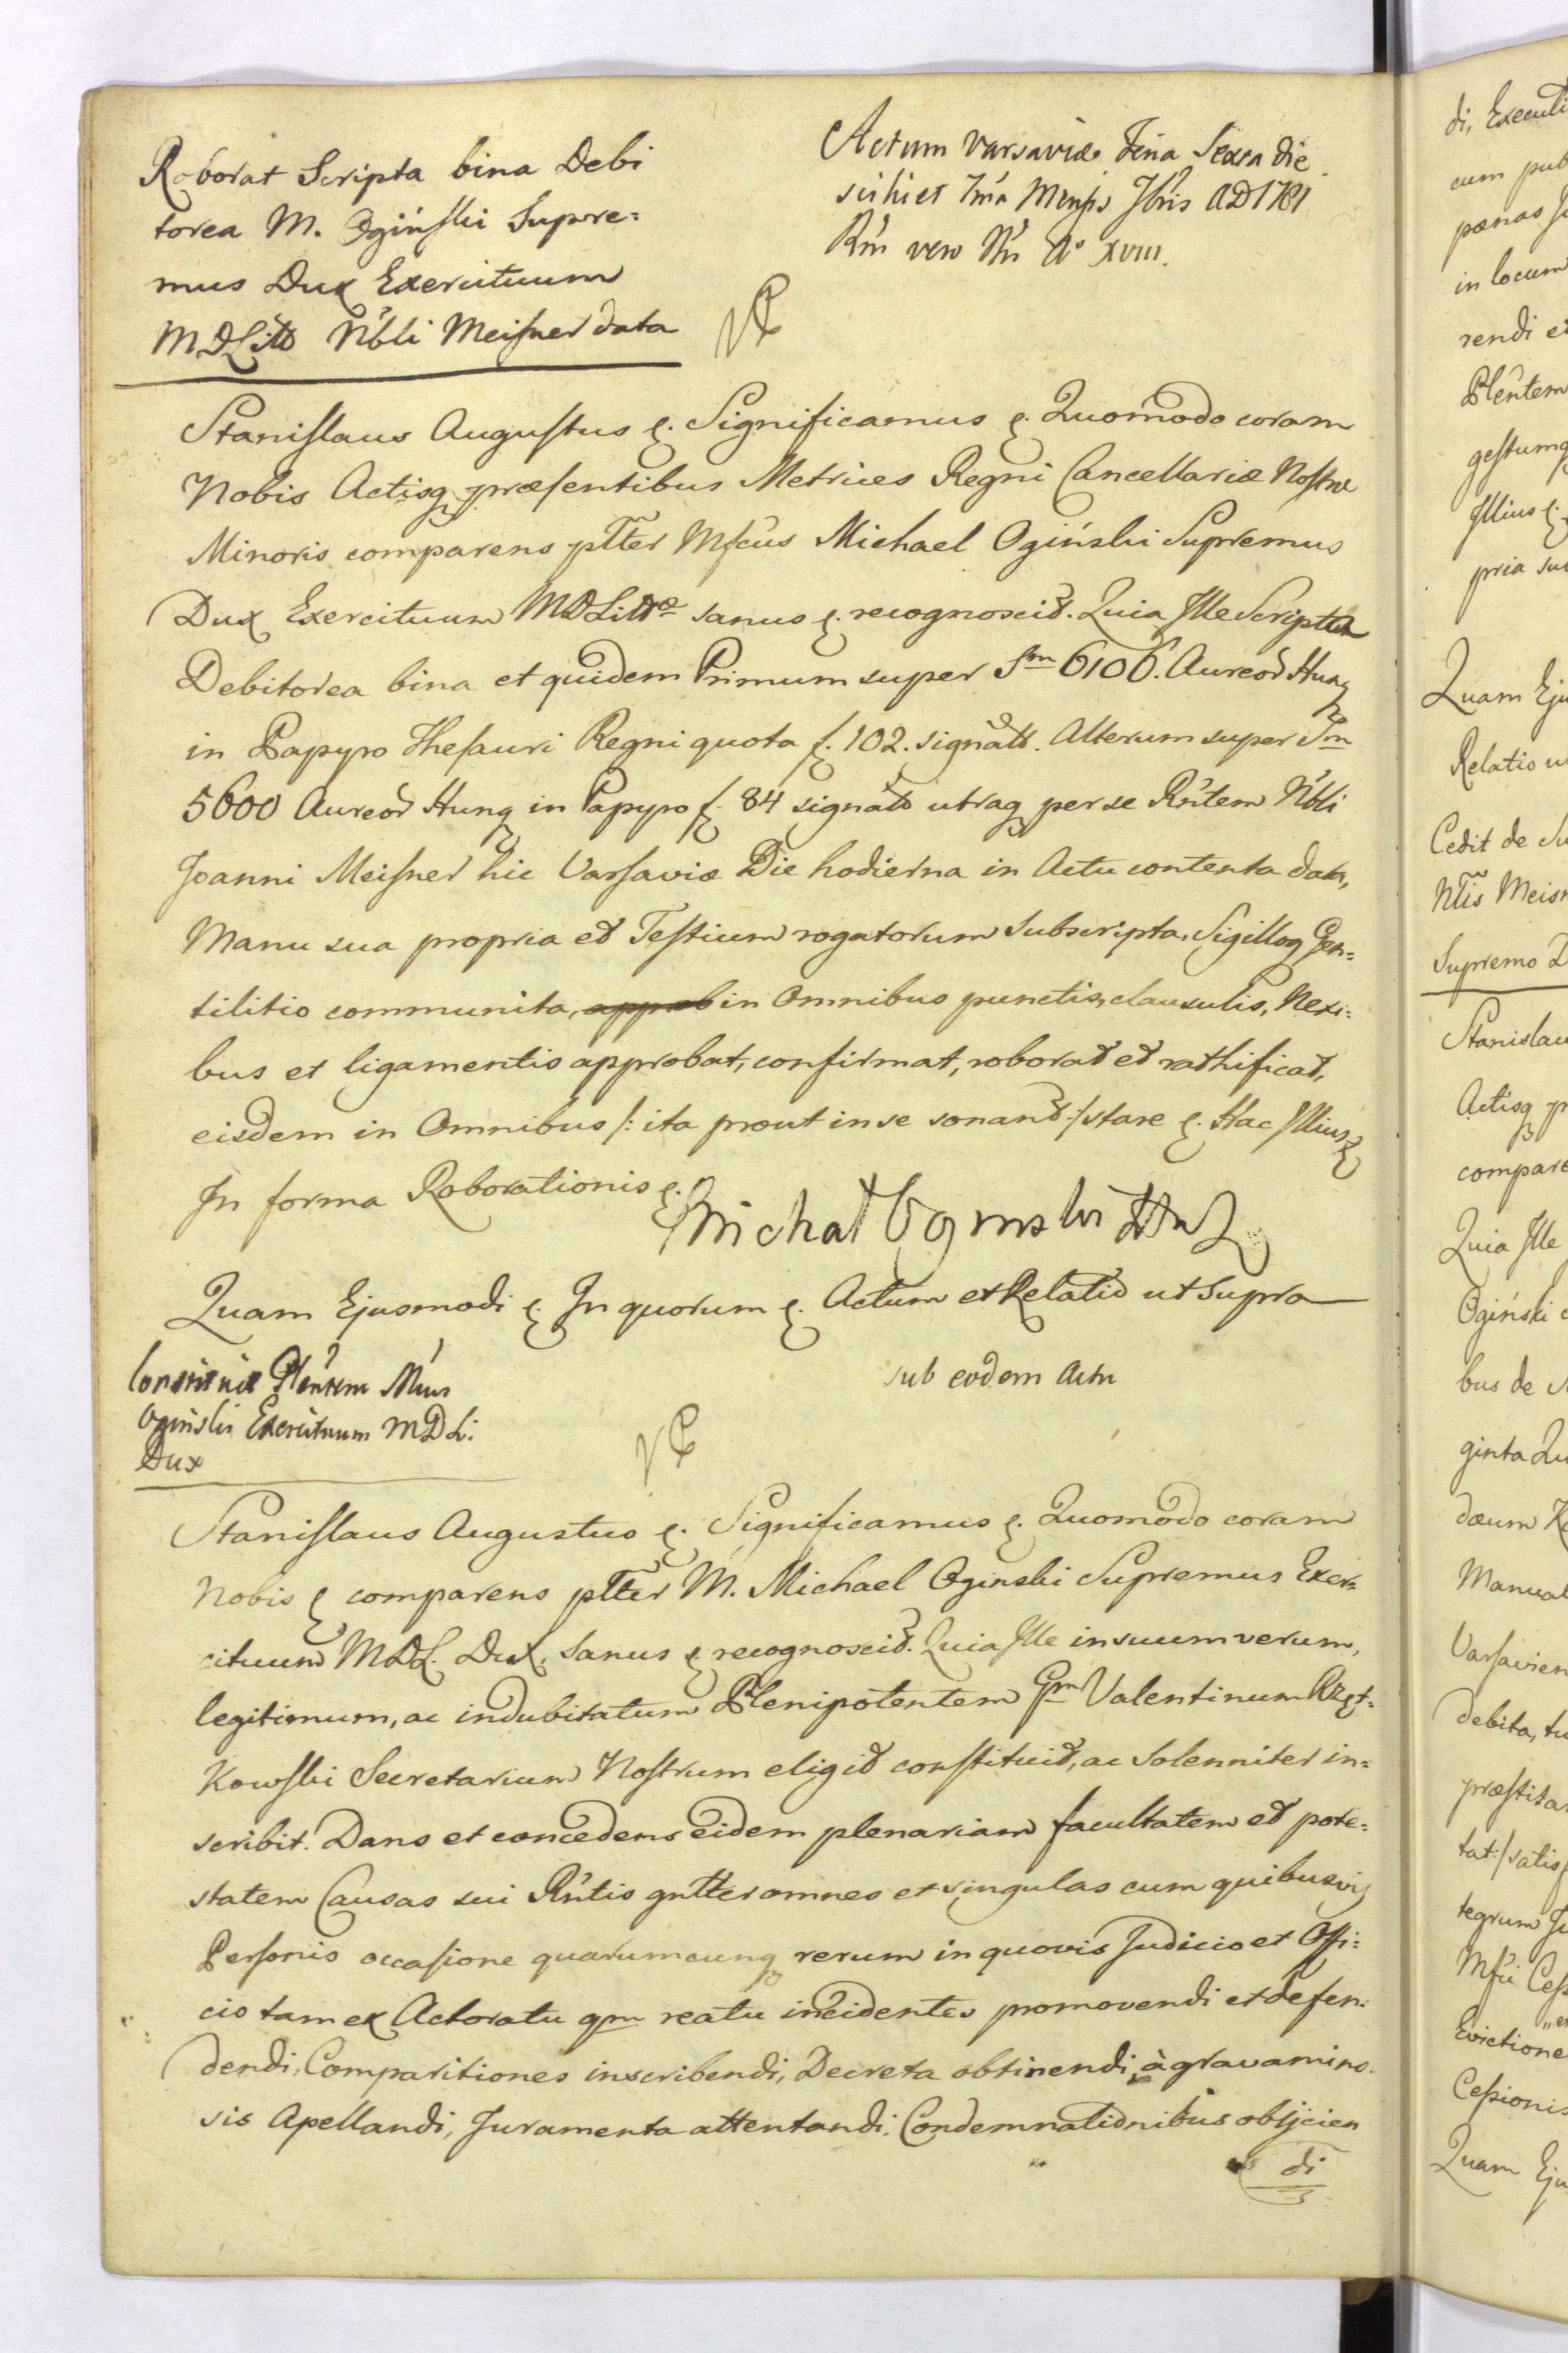 Roborat Scripta bina Debi
torea M. Ogiński Supre=
mus Dux Exercituum
MDLitt Nbli Meisner data
Actum Varsaviæ Feria Sexta die
scilicet 7ma Mensis 7bris AD 1781
Rni vero Nri Ao XVIII.
Stanislaus Augustus &. Significamus &. Quomodo coram
Nobis Actisq præsentibus Metrices Regni Cancellariæ Nostræ
Minoris comparens pltter Mfcus Michael Ogiński Supremus
Dux Exercituum MDLitt sanus &. recognoscit. Quia Ille Scripta
Debitorea bina et quidem Primum super Sm 6106. Aureor Hung
in Papyro Thesauri Regni quota f. 102. signato. Alterum super Sm
5600 Aureor Hung in Papyro f. 84 signato utraq per se Rntem Nbli
Joanni Meisner hic Varsaviæ Die hodierna in Actu contenta data,
Manu sua propria et Testium rogatorum Subscripta, Sigilloq Gen=
tilitio communita, approb in Omnibus punctis, clausulis, Nexi=
bus et ligamentis approbat, confirmat, roborat et rathificat,
eisdem in Omnibus /: ita prout in se sonant :/ stare &. Hac Illius &
In forma Roborationis &.
Michał Oginski HWL
Quam Ejusmodi &. In quorum &. Actum et Relatio ut Supra
Constituit Plentem Mcus
Oginski Exercituum MDL:
Dux
sub eodem Actu
Stanislaus Augustus &. Significamus &. Quomodo coram
Nobis & comparens pltter M. Michael Oginski Supremus Exer=
cituum MDL. Dux, Sanus & recognoscit. Quia Ille in suum verum,
legitimum, ac indubitatum Plenipotentem Gm Valentinum Rzęt=
kowski Secretarium Nostrum eligit constituit, ac Solenniter in=
scribit. Dans et concedens eidem plenariam facultatem et pote=
statem Causas sui Rntis gnlter omnes et singulas cum quibusvis
Personis occasione quarumcunq rerum in quovis Judicio et Offi=
cio tam ex Actoratu qm reatu incidentes promovendi et defen=
dendi, Comparitiones inscribendi, Decreta obtinendi, à gravamino=
sis Apellandi, Juramenta attentandi, Condemnationibus objicien
di
di, Executi
cum pub
pœnas
in locum
rendi et
Plentem
gestumq
Illius &.
pria su
Quam Eju
Relatio u
Cedit de Su
Ntis Meisn
Supremo D
Stanislau
Actisq pr
compare
Quia Ille
Ogiński
bus de
ginta Qu
dæum
Manual
Varsavien
debita, tu
præstita
tat:/ satis
tegrum Ju
Mfci Cess
Evictione
Cessionis
Quam Eju